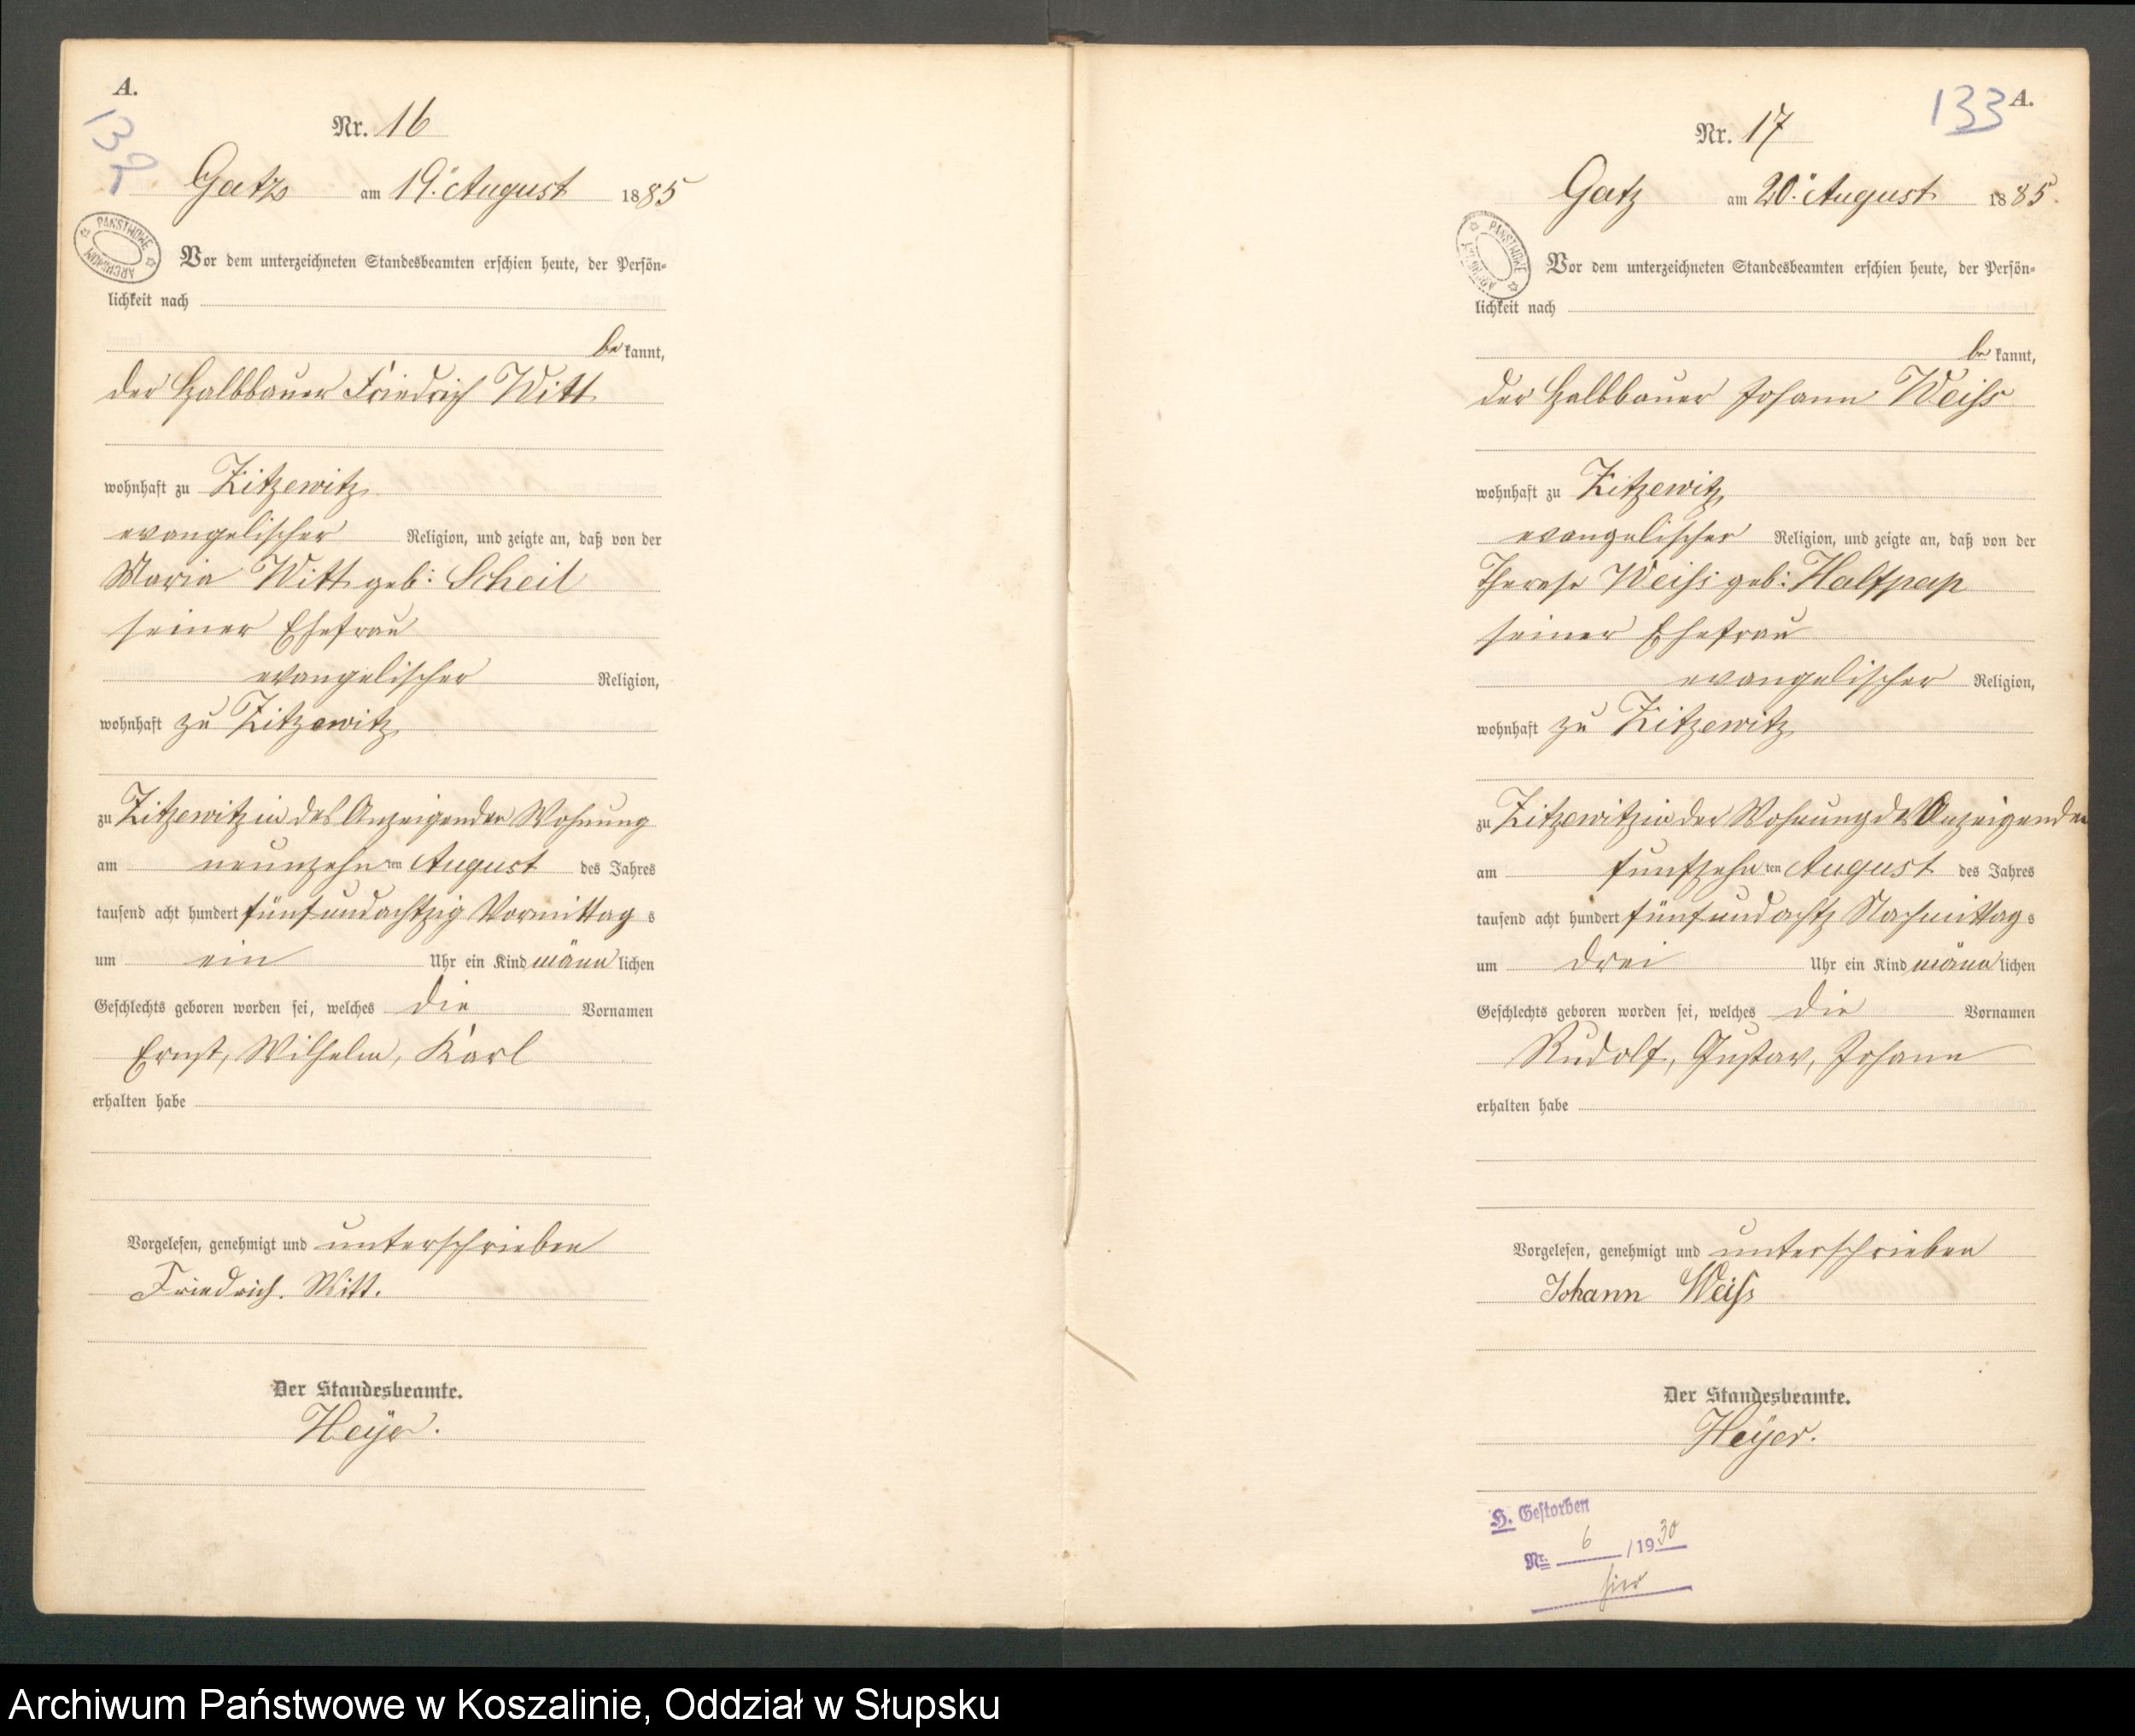 A.
132
Nr. 16
Gatz am 19. August 1885
PAŃSTWOWE ARCHIWUM
Vor dem unterzeichneten Standesbeamten erschien heute, der Persön-
lichkeit nach
bekannt,
der Halbbauer Friedrich Witt
wohnhaft zu Zitzewitz
evangelischer Religion, und zeigte an, daß von der
Maria Witt geb: Scheil
seiner Ehefrau
evangelischer Religion,
wohnhaft zu Zitzewitz
zu Zitzewitz in des Anzeigenden Wohnung
am neunzehnten August des Jahres
tausend acht hundert fünfundachtzig Vormittags
um ein Uhr ein Kind männlichen
Geschlechts geboren worden sei, welches die Vornamen
Ernst, Wilhelm, Karl
erhalten habe
Vorgelesen, genehmigt und unterschrieben
Friedrich. Witt.
Der Standesbeamte.
Heyer.
133 A.
Nr. 17
Gatz am 20. August 1885.
PAŃSTWOWE ARCHIWUM
Vor dem unterzeichneten Standesbeamten erschien heute, der Persön-
lichkeit nach
bekannt,
der Halbbauer Johann Weiss
wohnhaft zu Zitzewitz
evangelischer Religion, und zeigte an, daß von der
Therese Weiss geb: Halfpap
seiner Ehefrau
evangelischer Religion,
wohnhaft zu Zitzewitz
zu Zitzewitz in der Wohnung des Anzeigenden
am fünfzehnten August des Jahres
tausend acht hundert fünfundachtz Nachmittags
um drei Uhr ein Kind männlichen
Geschlechts geboren worden sei, welches die Vornamen
Rudolf, Gustav, Johann
erhalten habe
Vorgelesen, genehmigt und unterschrieben
Johann Weiss
Der Standesbeamte.
Heyer.
H. Gestorben
Nr. 6 /1930
hier
Archiwum Państwowe w Koszalinie, Oddział w Słupsku